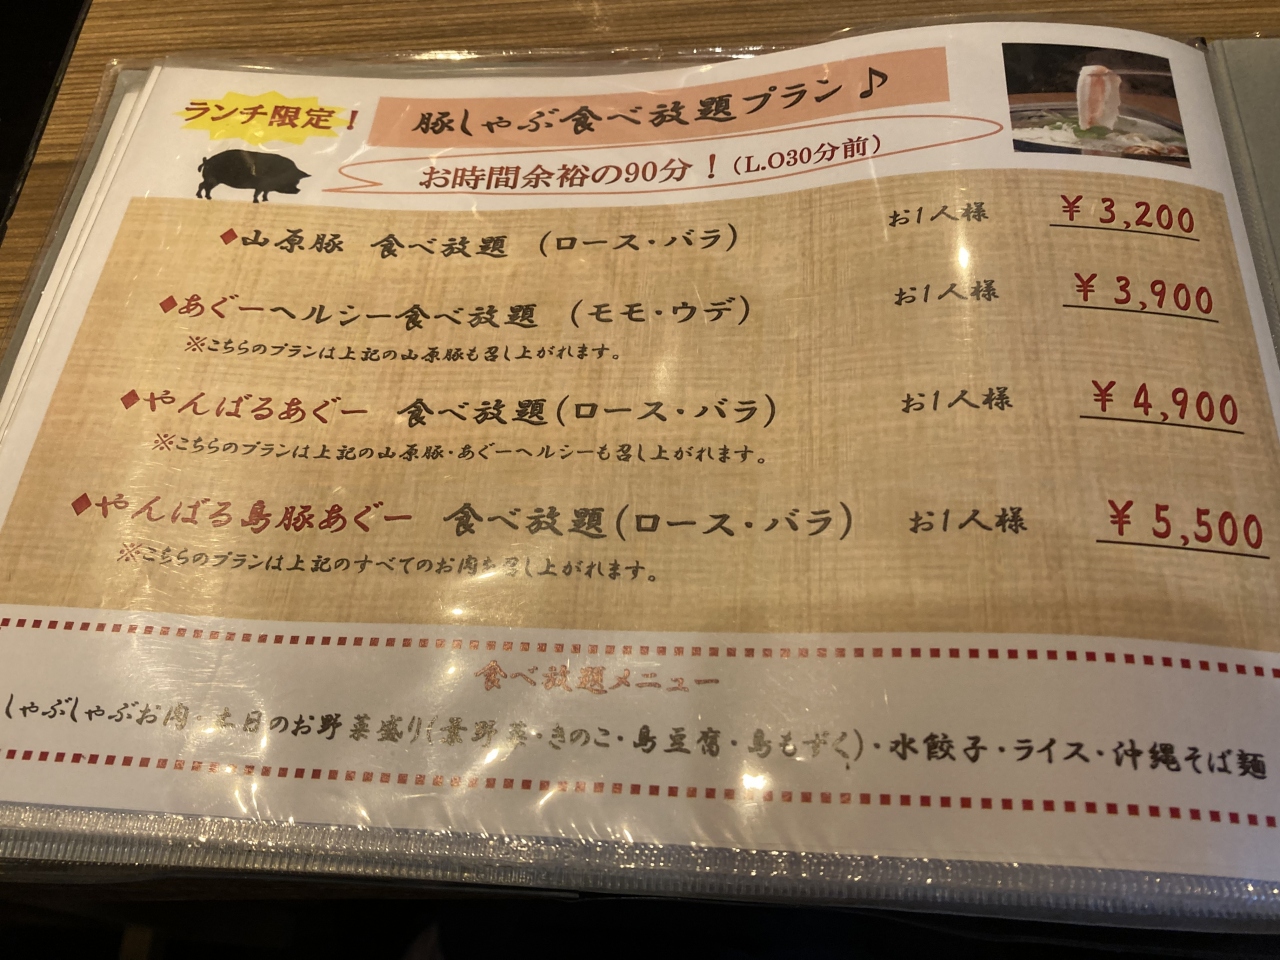 ランチ限定！
豚しゃぶ食べ放題プラン♪
お時間余裕の90分！(L.O30分前)
◆山原豚 食べ放題 (ロース・バラ) お1人様 ¥3,200
◆あぐーヘルシー食べ放題 (モモ・ウデ) お1人様 ¥3,900
※こちらのプランは上記の山原豚も召し上がれます。
◆やんばるあぐー 食べ放題(ロース・バラ) お1人様 ¥4,900
※こちらのプランは上記の山原豚・あぐーヘルシーも召し上がれます。
◆やんばる島豚あぐー 食べ放題(ロース・バラ) お1人様 ¥5,500
※こちらのプランは上記のすべてのお肉を召し上がれます。
食べ放題メニュー
しゃぶしゃぶお肉・本日のお野菜盛り(葉野菜・きのこ・島豆腐・島もずく)・水餃子・ライス・沖縄そば麺